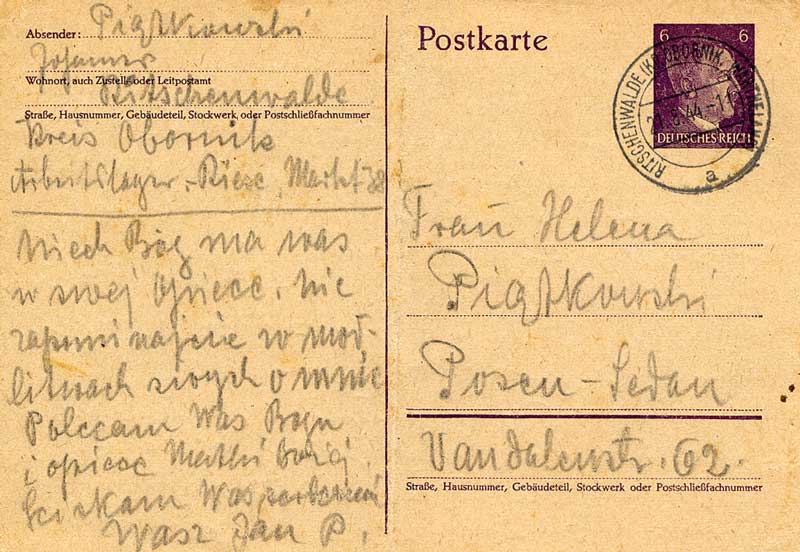 Absender: Piątkowski
Johannes
Wohnort, auch Zustell- oder Leitpostamt
Ritschenwalde
Straße, Hausnummer, Gebäudeteil, Stockwerk, oder Postschließfachnummer
Kreis Obornik
Arbeitslager - Riese, Markt 38
Niech Bóg ma was
w swej opiece. Nie
zapominajcie w mod-
litwach swych o mnie
Polecam Was Bogu
i opiece Matki Bożej.
Ściskam Was serdecznie
Wasz Jan P.
Postkarte
6 6
DEUTSCHES REICH
RITSCHENWALDE (KR. OBORNIK, WARTHELAND)
44 -11
a
Frau Helena
Piątkowski
Posen - Sedan
Vandalenstr. 62.
Straße, Hausnummer, Gebäudeteil, Stockwerk oder Postschließfachnummer